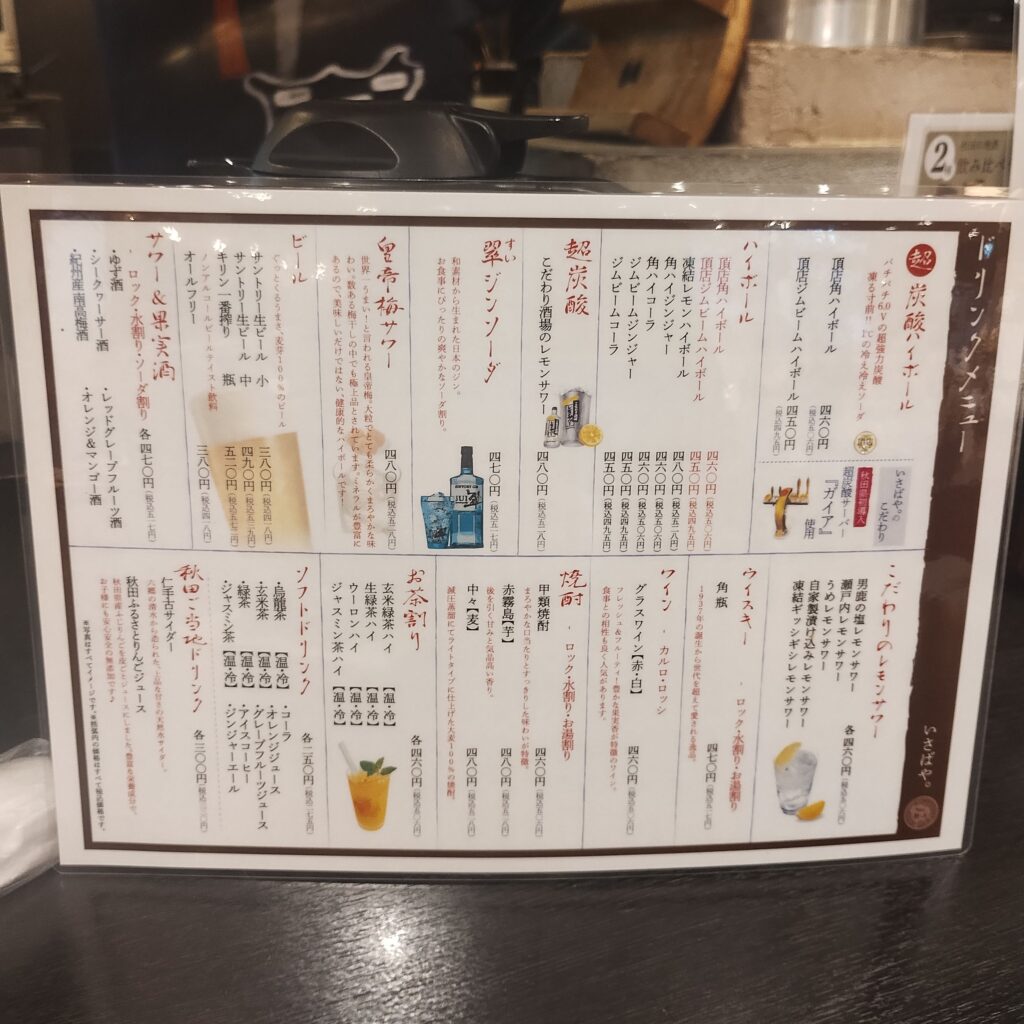 ドリンクメニュー
超炭酸ハイボール
バチバチ6.0Vの超強力炭酸
凍るす前!! 1℃の冷え冷えソーダ
頂店角ハイボール 四六〇円(税込五〇六円)
頂店ジムビームハイボール 四五〇円(税込四九五円)
いさばや。のこだわり
秋田県初導入
超炭酸サーバー
『ガイア』使用
ハイボール
頂店角ハイボール 四六〇円(税込五〇六円)
頂店ジムビームハイボール 四五〇円(税込四九五円)
凍結レモンハイボール 四八〇円(税込五二八円)
角ハイジンジャー 四六〇円(税込五〇六円)
角ハイコーラ 四六〇円(税込五〇六円)
ジムビームジンジャー 四五〇円(税込四九五円)
ジムビームコーラ 四五〇円(税込四九五円)
超炭酸
こだわり酒場のレモンサワー 四八〇円(税込五二八円)
すい
翠ジンソーダ
和素材から生まれた日本のジン。
お食事にぴったりの爽やかなソーダ割り。
四七〇円(税込五一七円)
皇帝梅サワー
世界一うまい!と言われる皇帝梅、大粒でとても柔らかくまろやかな味
わい。数ある梅干しの中でも極上品とされています。ミネラルが豊富に
あるので、美味しいだけではない、健康的なハイボールです!
四八〇円(税込五二八円)
ビール
ぐっとくるうまさ、麦芽100%のビール
サントリー生ビール 小 三八〇円(税込四一八円)
サントリー生ビール 中 四九〇円(税込五三九円)
キリン一番搾り 瓶 五二〇円(税込五七二円)
ノンアルコールビールテイスト飲料
オールフリー 三八〇円(税込四一八円)
サワー&果実酒
・ロック・水割り・ソーダ割り 各四七〇円(税込五一七円)
・ゆず酒
・シークワーサー酒
・紀州産南高梅酒
・レッドグレープフルーツ酒
・オレンジ&マンゴー酒
こだわりのレモンサワー
男鹿の塩レモンサワー
瀬戸内レモンサワー
うめレモンサワー
自家製漬け込みレモンサワー
凍結ギッシギシレモンサワー
各四六〇円(税込五〇六円)
ウイスキー ・ロック・水割り・お湯割り
角瓶 四七〇円(税込五一七円)
1937年の誕生から世代を超えて愛される逸品。
ワイン・カルロ・ロッシ
グラスワイン【赤・白】 四六〇円(税込五〇六円)
フレッシュ&フルーティー!豊かな果実香が特徴のワイン。
食事との相性も良く人気があります。
焼酎・ロック・水割り・お湯割り
甲類焼酎 四六〇円(税込五〇六円)
まろやかな口当たりとすっきりした味わいが特徴。
赤霧島【芋】 四八〇円(税込五二八円)
後を引く甘みと気品高い香り。
中々【麦】 四八〇円(税込五二八円)
減圧蒸溜にてライトタイプに仕上げた大麦100%の焼酎。
お茶割り 各四六〇円(税込五〇六円)
玄米緑茶ハイ 【温・冷】
生緑茶ハイ 【温・冷】
ウーロンハイ 【温・冷】
ジャスミン茶ハイ 【温・冷】
ソフトドリンク 各二五〇円(税込二七五円)
・烏龍茶 【温・冷】
・玄米茶 【温・冷】
・緑茶 【温・冷】
・ジャスミン茶 【温・冷】
・コーラ
・オレンジジュース
・グレープフルーツジュース
・アイスコーヒー
・ジンジャーエール
秋田ご当地ドリンク 各三〇〇円(税込三三〇円)
仁手古サイダー
六郷の清水から造られた、上品な甘さの天然水サイダー。
秋田ふるさとりんごジュース
秋田県産ふじりんごを皮ごとジュースにしました。豊富な栄養成分で、
お子様にも安心安全の無添加です♪
※写真はすべてイメージです。※括弧内の価格はすべて税込価格です。
いさばや。
2
飲み比べ